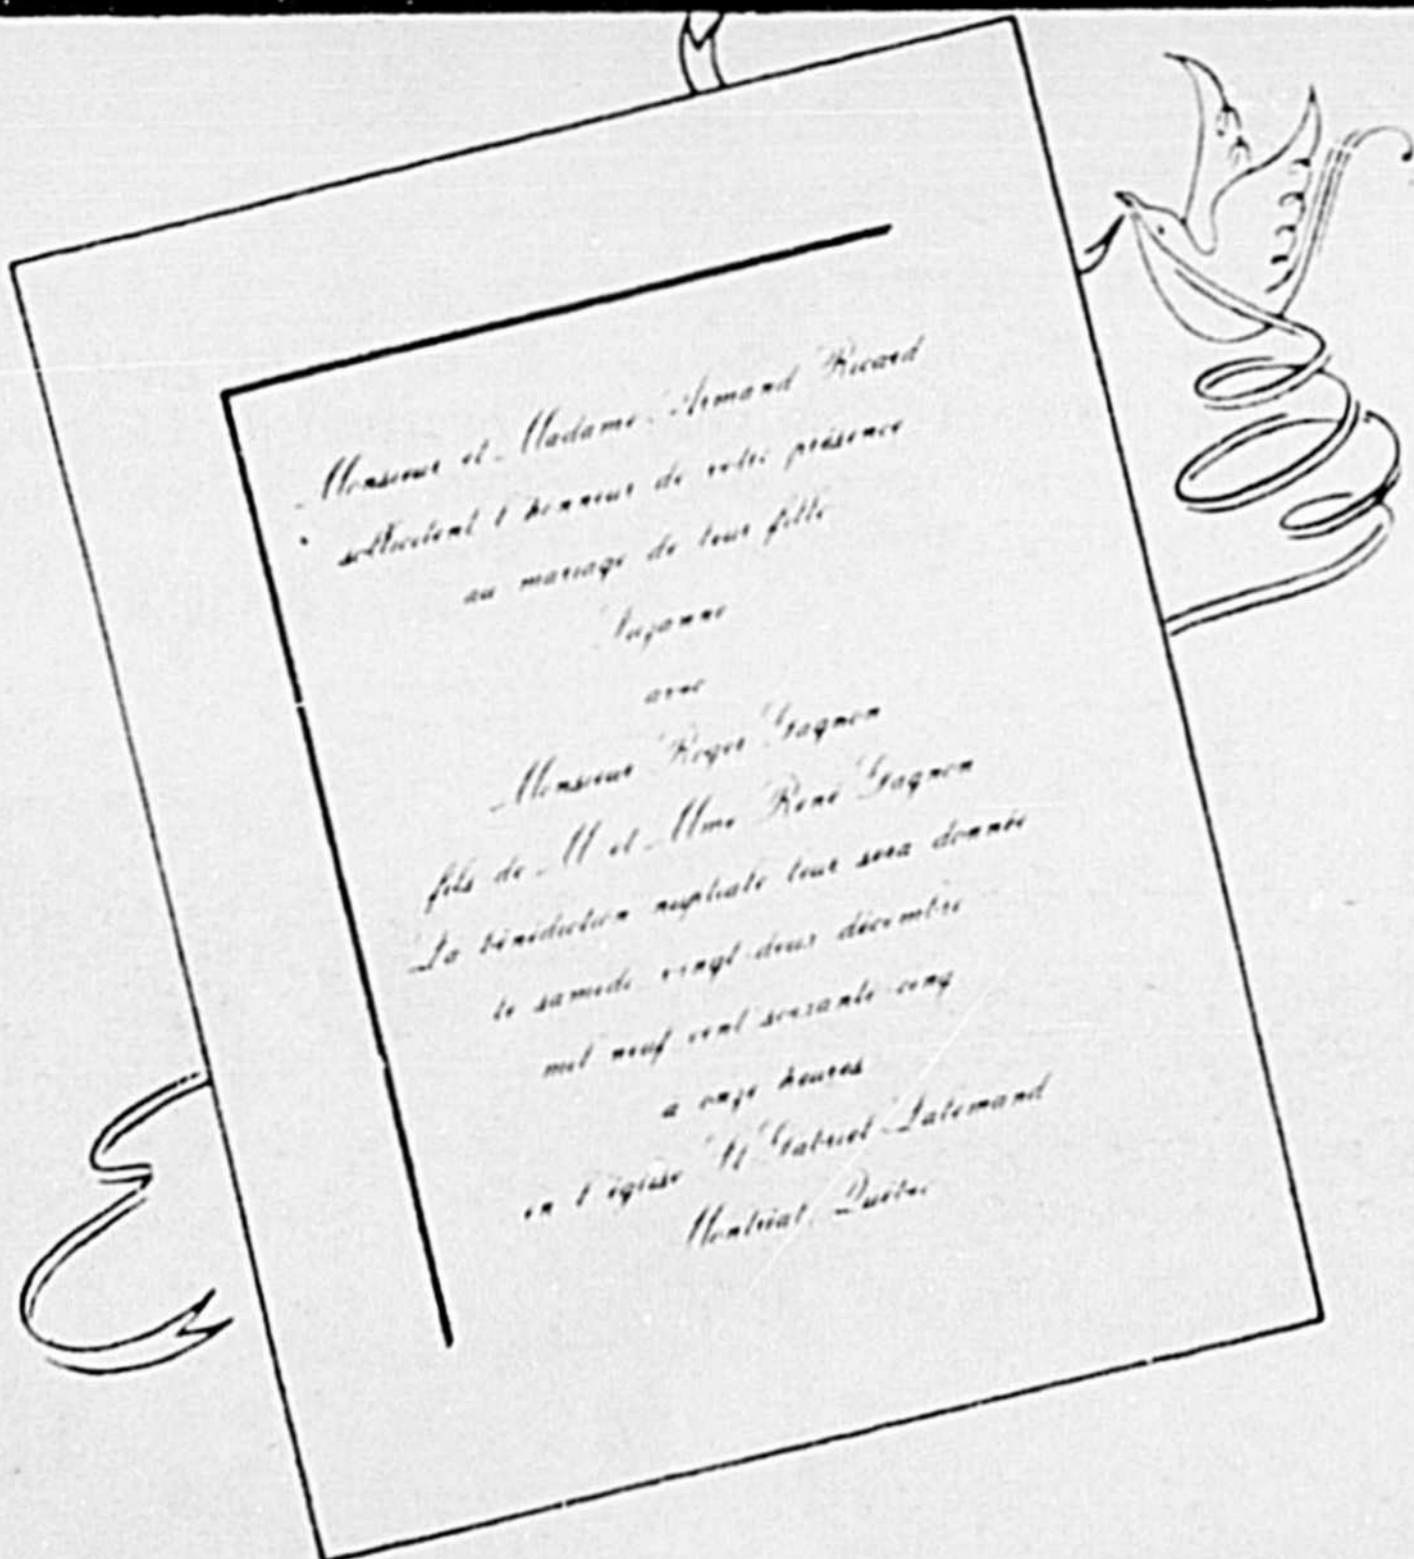 Monsieur et Madame Armand Ricard
sollicitent l'honneur de votre présence
au mariage de leur fille
Suzanne
avec
Monsieur Roger Gagnon
fils de M et Mme René Gagnon
La bénédiction nuptiale leur sera donnée
le samedi vingt-deux décembre
mil neuf cent soixante-cinq
à onze heures
en l'église St Gabriel Lalemand
Montréal, Québec